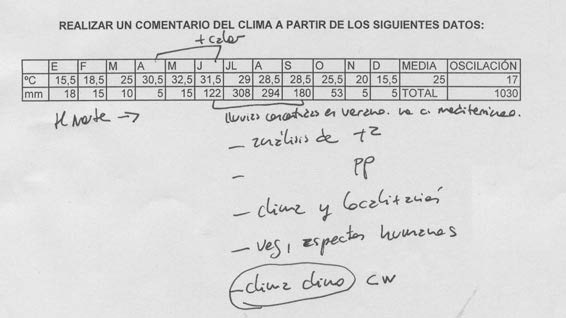 REALIZAR UN COMENTARIO DEL CLIMA A PARTIR DE LOS SIGUIENTES DATOS:
+ calor
E F M A M J JL A S O N D MEDIA OSCILACIÓN
ºC 15,5 18,5 25 30,5 32,5 31,5 29 28,5 28,5 25,5 20 15,5 25 17
mm 18 15 10 5 15 122 308 294 180 53 5 5 TOTAL 1030
H Norte → lluvias concentradas en verano. no a. mediterraneo.
- análisis de tª
- pp
- clima y localización
- veg, aspectos humanos
- clima chino CW